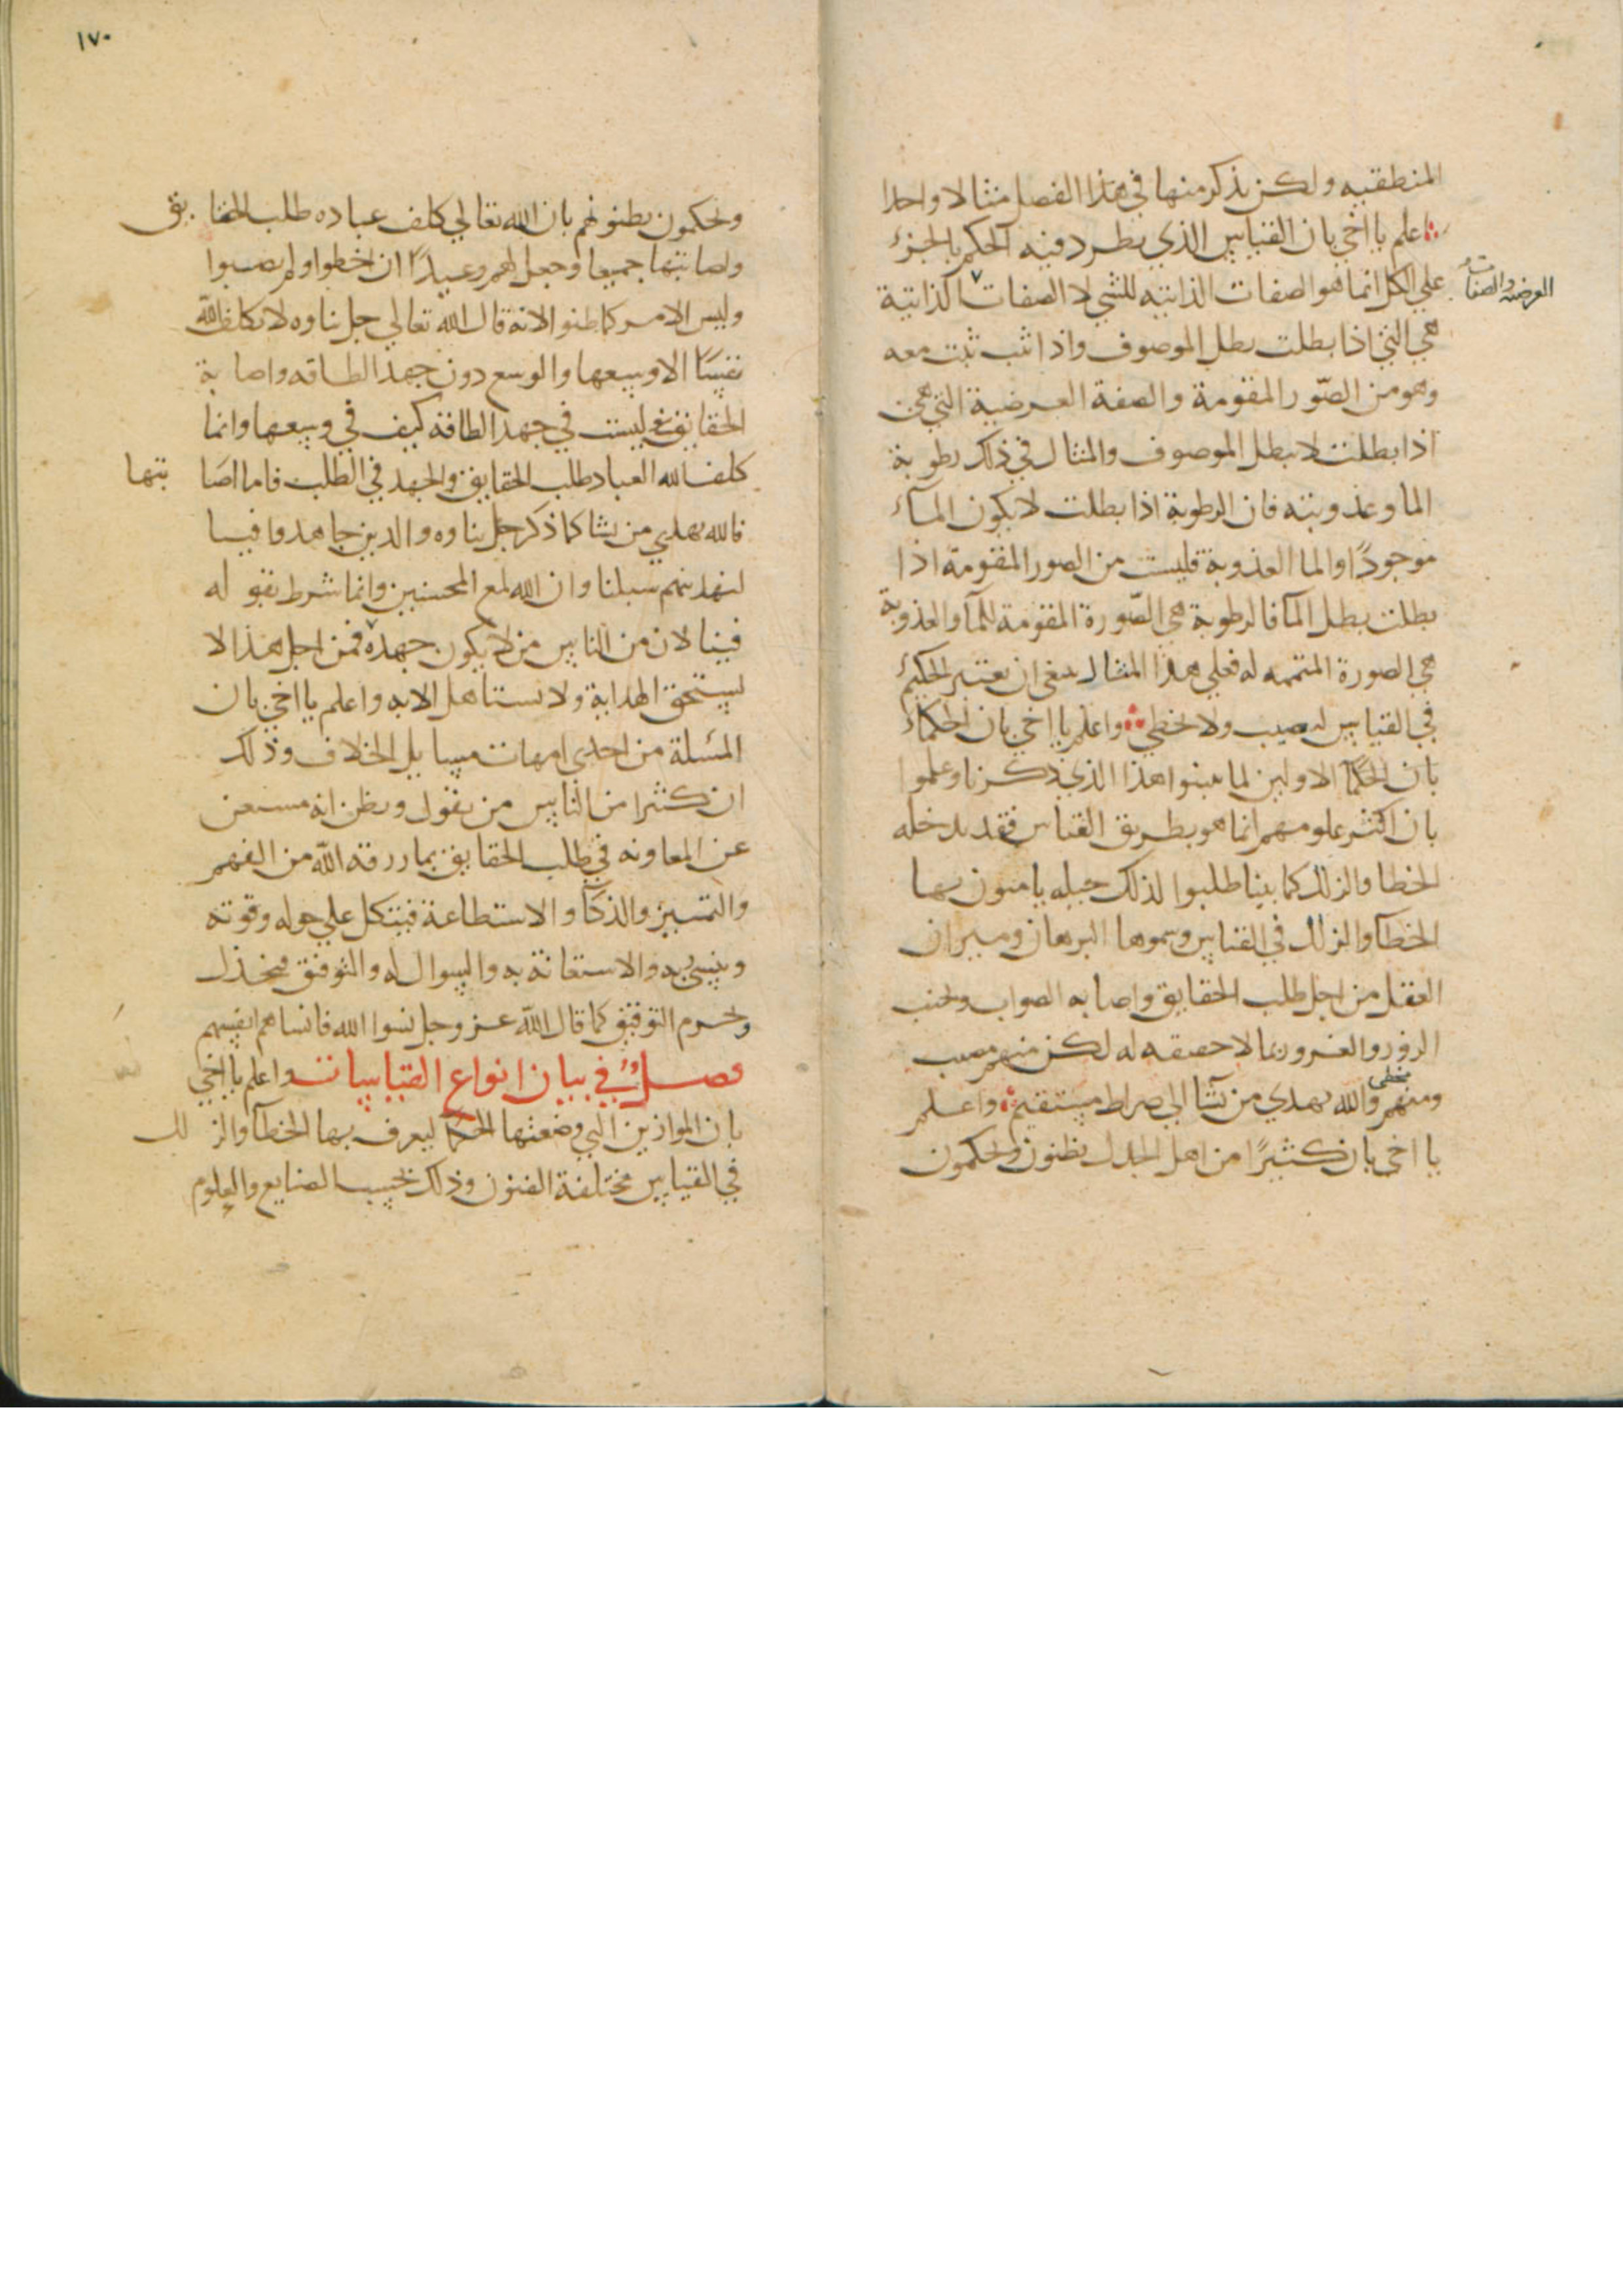 المنطقيه ولكن نذكر منها في هذا الفصل مثالا واحدا
اعلم يا اخي بان القياس الذي يطرد فيه الحكم بالجزء
علي الكل انما هو الصفات الذاتيه للشي لا الصفات الذاتية
العرضيه والصفات
هي التي اذا بطلت بطل الموصوف واذا ثبت ثبت معه
وهو من الصّور المقومة والصفة العرضية التي هي
اذا بطلت لا يبطل الموصوف والمثال في ذلك رطوبة
الما وعذوبته فان الرطوبة اذا بطلت لا يكون المآء
موجودًا والما العذوبة فليست من الصور المقومة اذا
بطلت بطل المآ فالرطوبة هي الصّورة المقومة للمآ والعذوبة
هي الصورة المتممه له فعلي هذا المثال ينبغي ان يعتبر الحكيم
في القياس ليصيب ولا يخطي واعلم يا اخي بان الحكماء
بان الحكما الاولين لما تبينوا هذا الذي ذكرنا وعلموا
بان اكثر علومهم انما هو بطريق القياس فقد يدخله
الخطا والزلل كما بينا طلبوا لذلك حيله يامنون بها
الخطآ والزلل في القياس وسموها البرهان وميزان
العقل من اجل طلب الحقايق واصابه الصواب وتجنب
الزور والغرور بما لا حقيقه له لكن منهم مصيب
ومنهم مخطي والله يهدي من يشا الي صراط مستقيم واعلم
يا اخي بان كثيرًا من اهل الجدل يظنون ويحكمون
١٧٠
ويحكمون بظنونهم بان الله تعالي كلف عباده طلب الحقايق
واصابتها جميعا وجعل لهم وعيدًا ان اخطوا ولم يصيبوا
وليس الامر كما ظنوا لانه قال الله تعالي جل ثناوه لا يكلف الله
نفسًا الا وسعها والوسع دون جهد الطاقه واصابة
الحقايق ليست في جهد الطاقة كيف في وسعها وانما
كلف الله العباد طلب الحقايق والجهد في الطلب فاما اصابتها
فالله يهدي من يشا كما ذكر جل ثناوه والذين جاهدوا فينا
لنهدينهم سبلنا وان الله لمع المحسنين وانما شرط بقوله
فينا لان من الناس من لا يكون جهده فمن اجل هذا لا
يستحق الهداية ولا يستاهل الا به واعلم يا اخي بان
المسئلة من احدي امهات مسايل الخلاف وذلك
ان كثيرا من الناس من يقول ويظن انه مستغن
عن المعاونه في طلب الحقايق بما رزقه الله من الفهم
والتمييز والذكآ والاستطاعة فيتكل علي حوله وقوته
وينسي ربه والاستعانة به والسوال له والتوفيق فيخذل
ويحرم التوفيق كما قال الله عز وجل نسوا الله فانساهم انفسهم
فصل في بيان انواع القياسات واعلم يا اخي
بان الموازين التي وضعتها الحكما ليعرف بها الخطآ والزلل
في القياس مختلفة الفنون وذلك بحسب الصنايع والعلوم